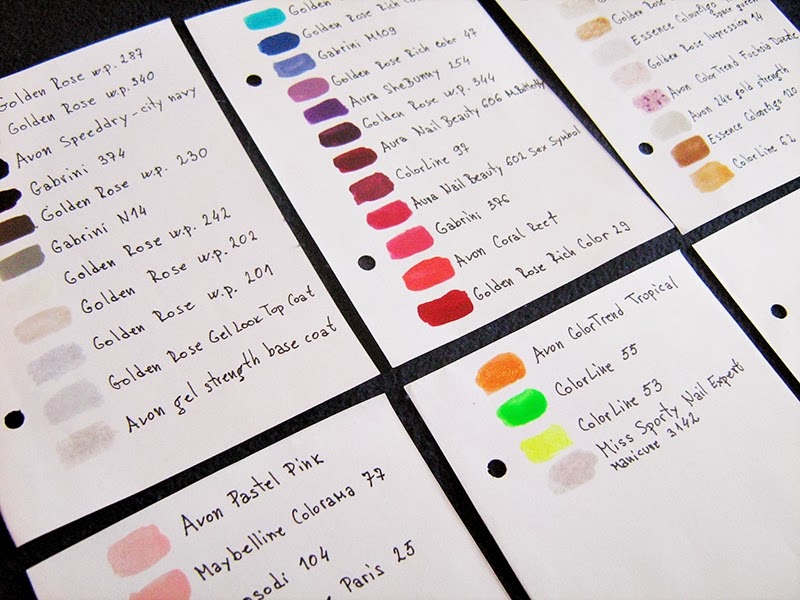 Golden Rose w.p. 287
Golden Rose w.p. 340
Avon Speeddry-city navy
Gabrini 374
Golden Rose w.p. 230
Gabrini N14
Golden Rose w.p. 242
Golden Rose w.p. 202
Golden Rose w.p. 201
Golden Rose Gel Look Top Coat
Avon gel strength base coat
Golden
Golden Rose Rich
Gabrini M109
Golden Rose Rich color 47
Aura SheBunny 254
Golden Rose w.p. 344
Aura Nail Beauty 606 M.Butterfly
ColorLine 97
Aura Nail Beauty 602 Sex Symbol
Gabrini 376
Avon Coral Reef
Golden Rose Rich Color 29
Golden Rose
Essence Color&go space queen
Golden Rose Impression 14
Avon ColorTrend Fuchsia Dazzle
Avon 24K gold strength
Essence Color&go 120
ColorLine 62
Avon ColorTrend Tropical
ColorLine 55
ColorLine 53
Miss Sporty Nail Expert
manicure 3142
Avon Pastel Pink
Maybelline Colorama 77
104
Paris 25